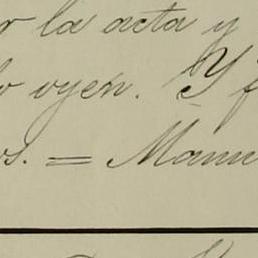 r la acta y
o oyen. Y f
os. = Manu